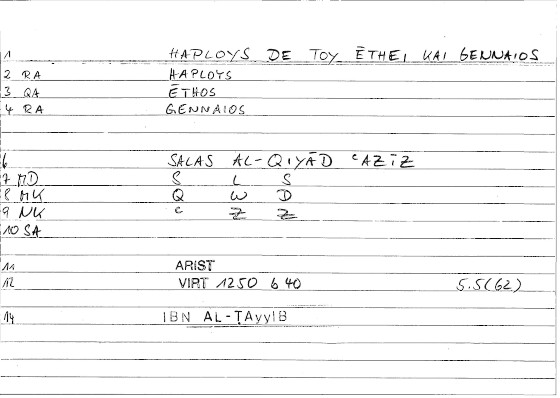 1 HAPLOYS DE TOY ĒTHEI KAI GENNAIOS
2 RA HAPLOYS
3 QA ĒTHOS
4 RA GENNAIOS
6 SALAS AL-QIYĀD ʿAZĪZ
7 MD S L S
8 MK Q W D
9 NK ʿ Z Z
10 SA
11 ARIST
12 VIRT 1250 b 40 5.5(62)
14 IBN AL-ṬAyyIB